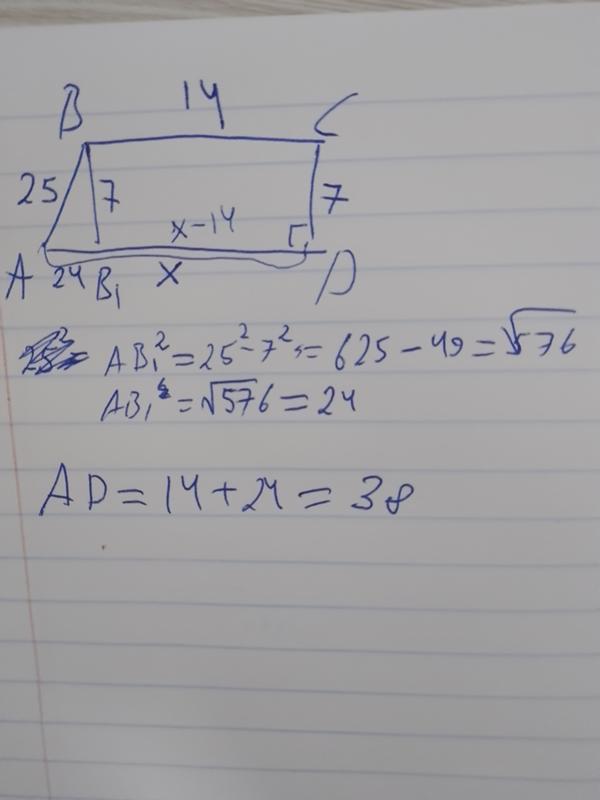 B 14 C
25 7 7
x-14
A 24 B₁ x D
AB₁² = 25² - 7² = 625 - 49 = √576
AB₁ = √576 = 24
AD = 14 + 24 = 38